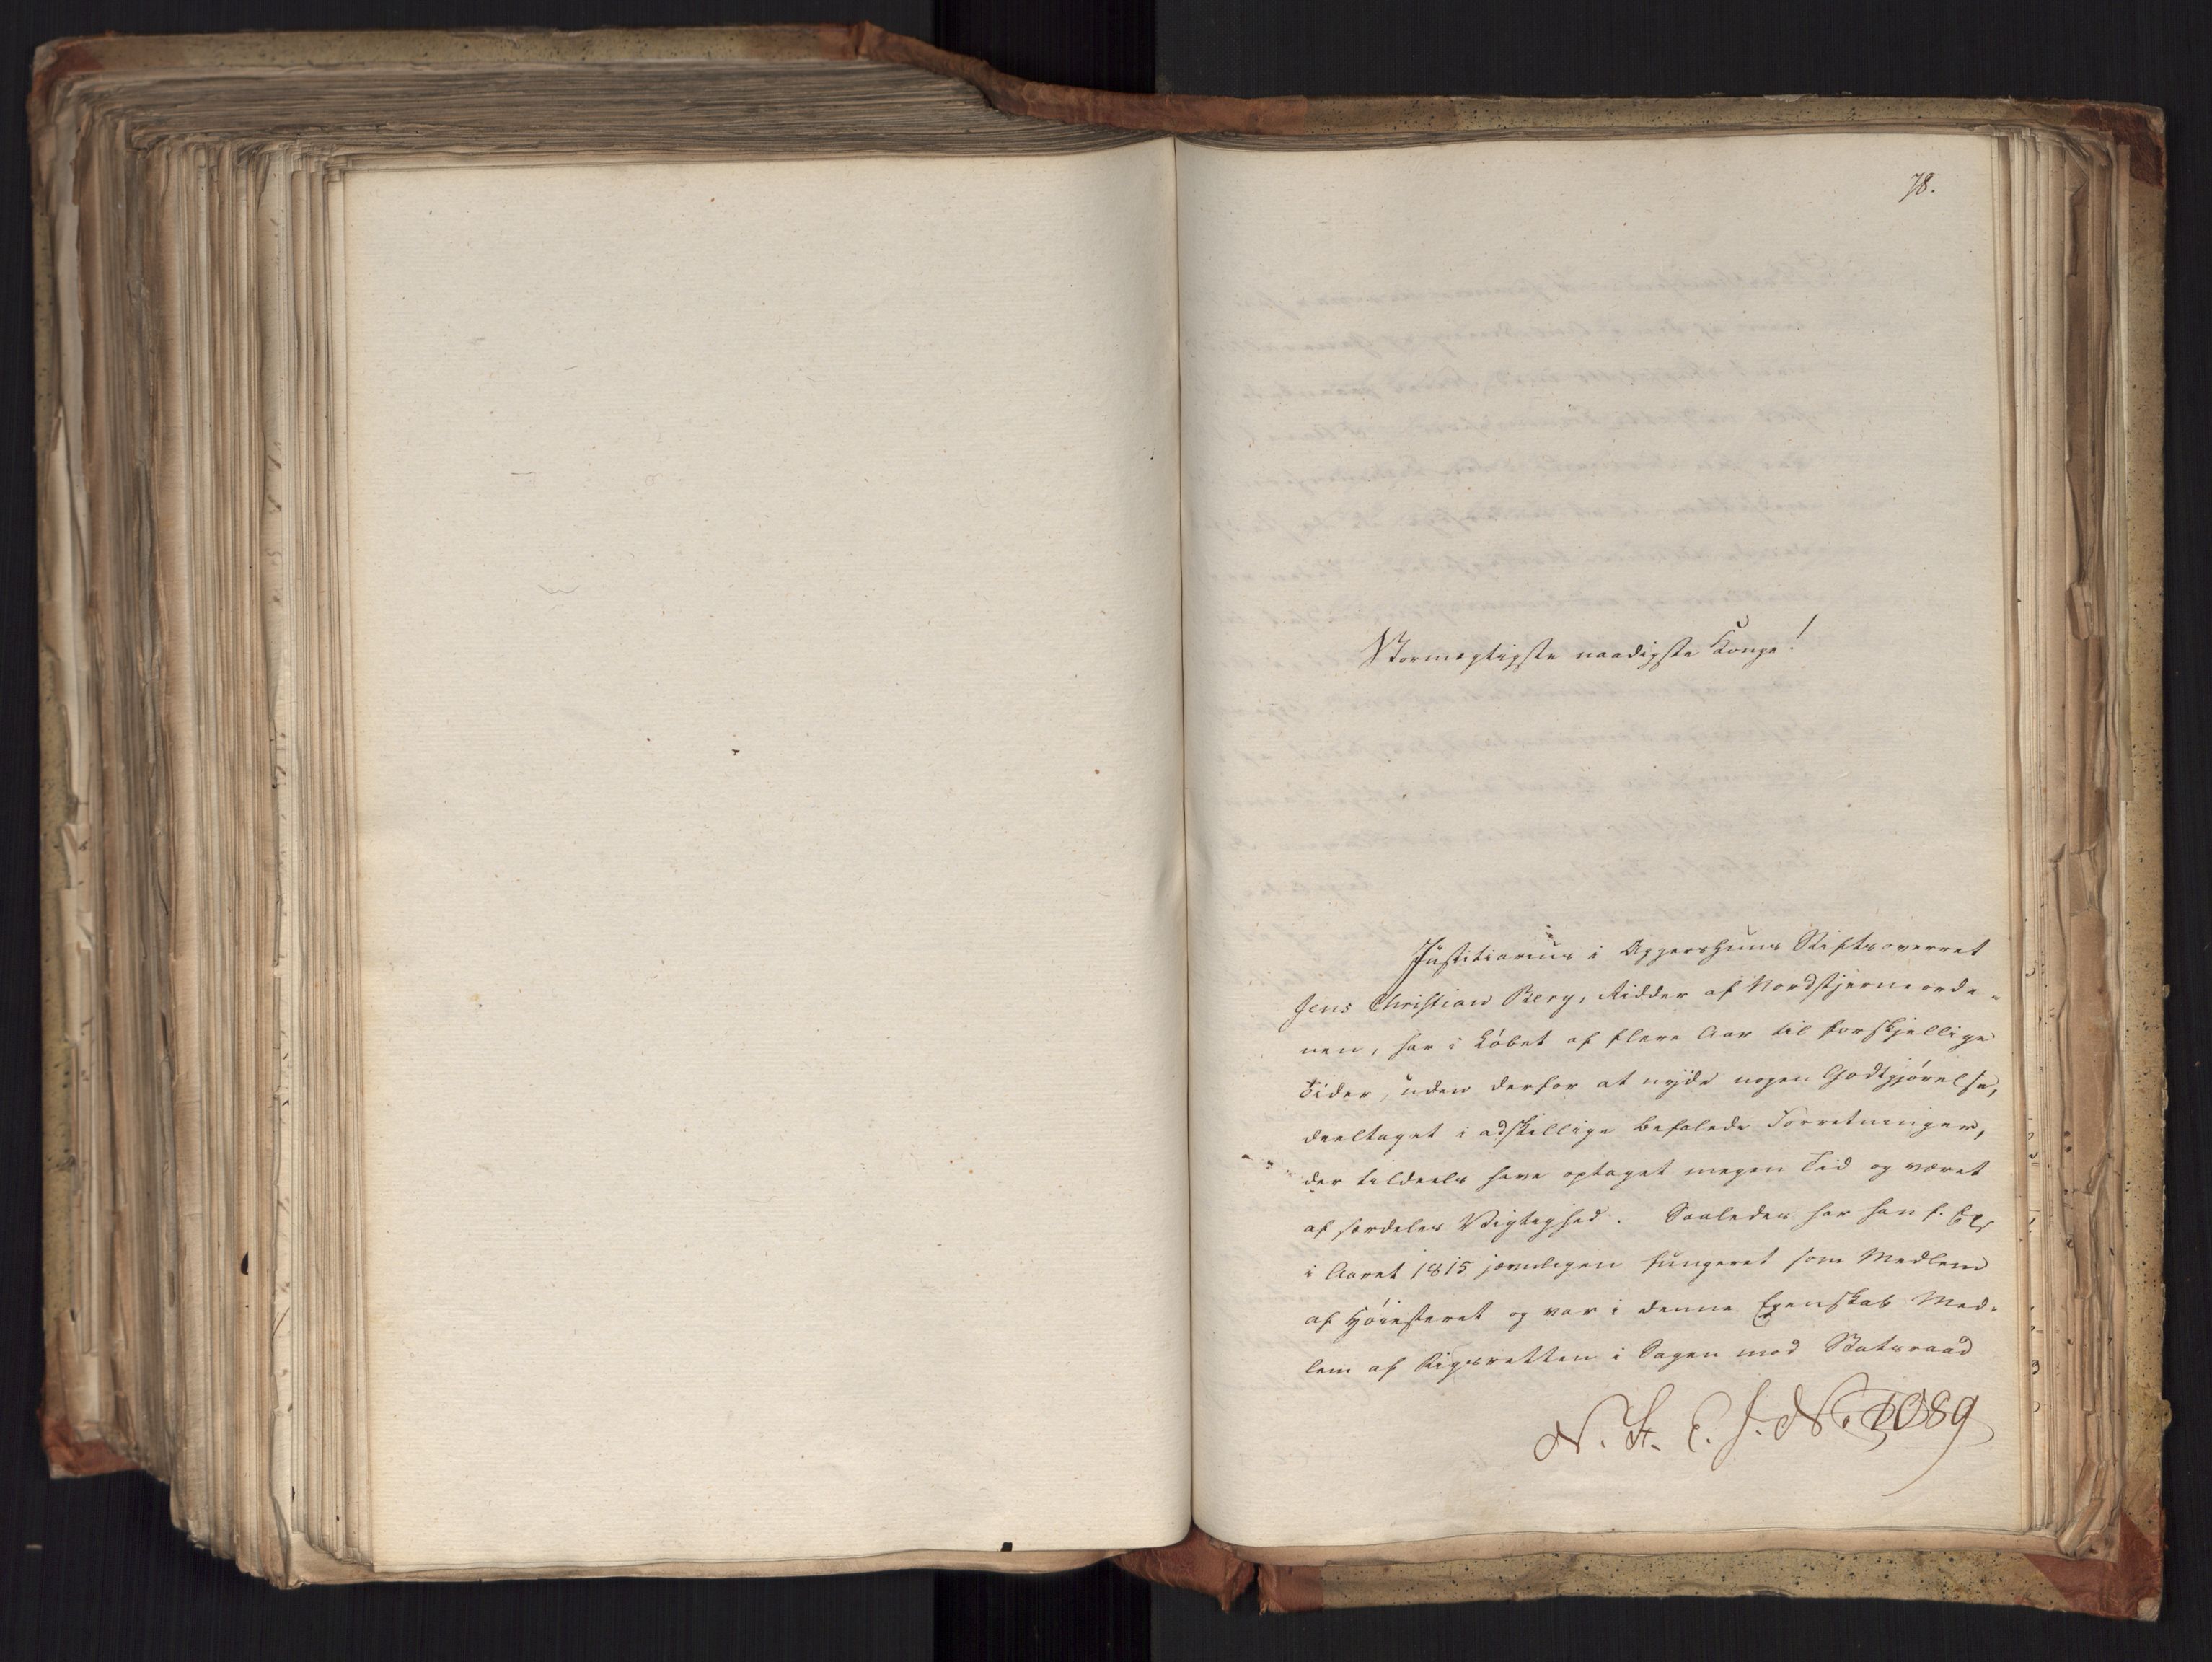 78.
Stormægtigste naadigste Konge!
Justitiarius i Aggershuus Stiftsoverret
Jens Christian Berg, Ridder af Nordstjerneorde-
nen, har i Løbet af flere Aar til forskjellige
Tider, uden derfor at nyde nogen Godtgjørelse,
deeltaget i adskillige befalede Forretninger,
der tildeels have optaget megen Tid og været
af særdeles Vigtighed. Saaledes har han f. Ex.
i Aaret 1815 jævnligen fungeret som Medlem
af Høiesteret og var i denne Egenskab Med-
lem af Rigsretten i Sagen mod Statsraad
N. St. E. J. No. 1089